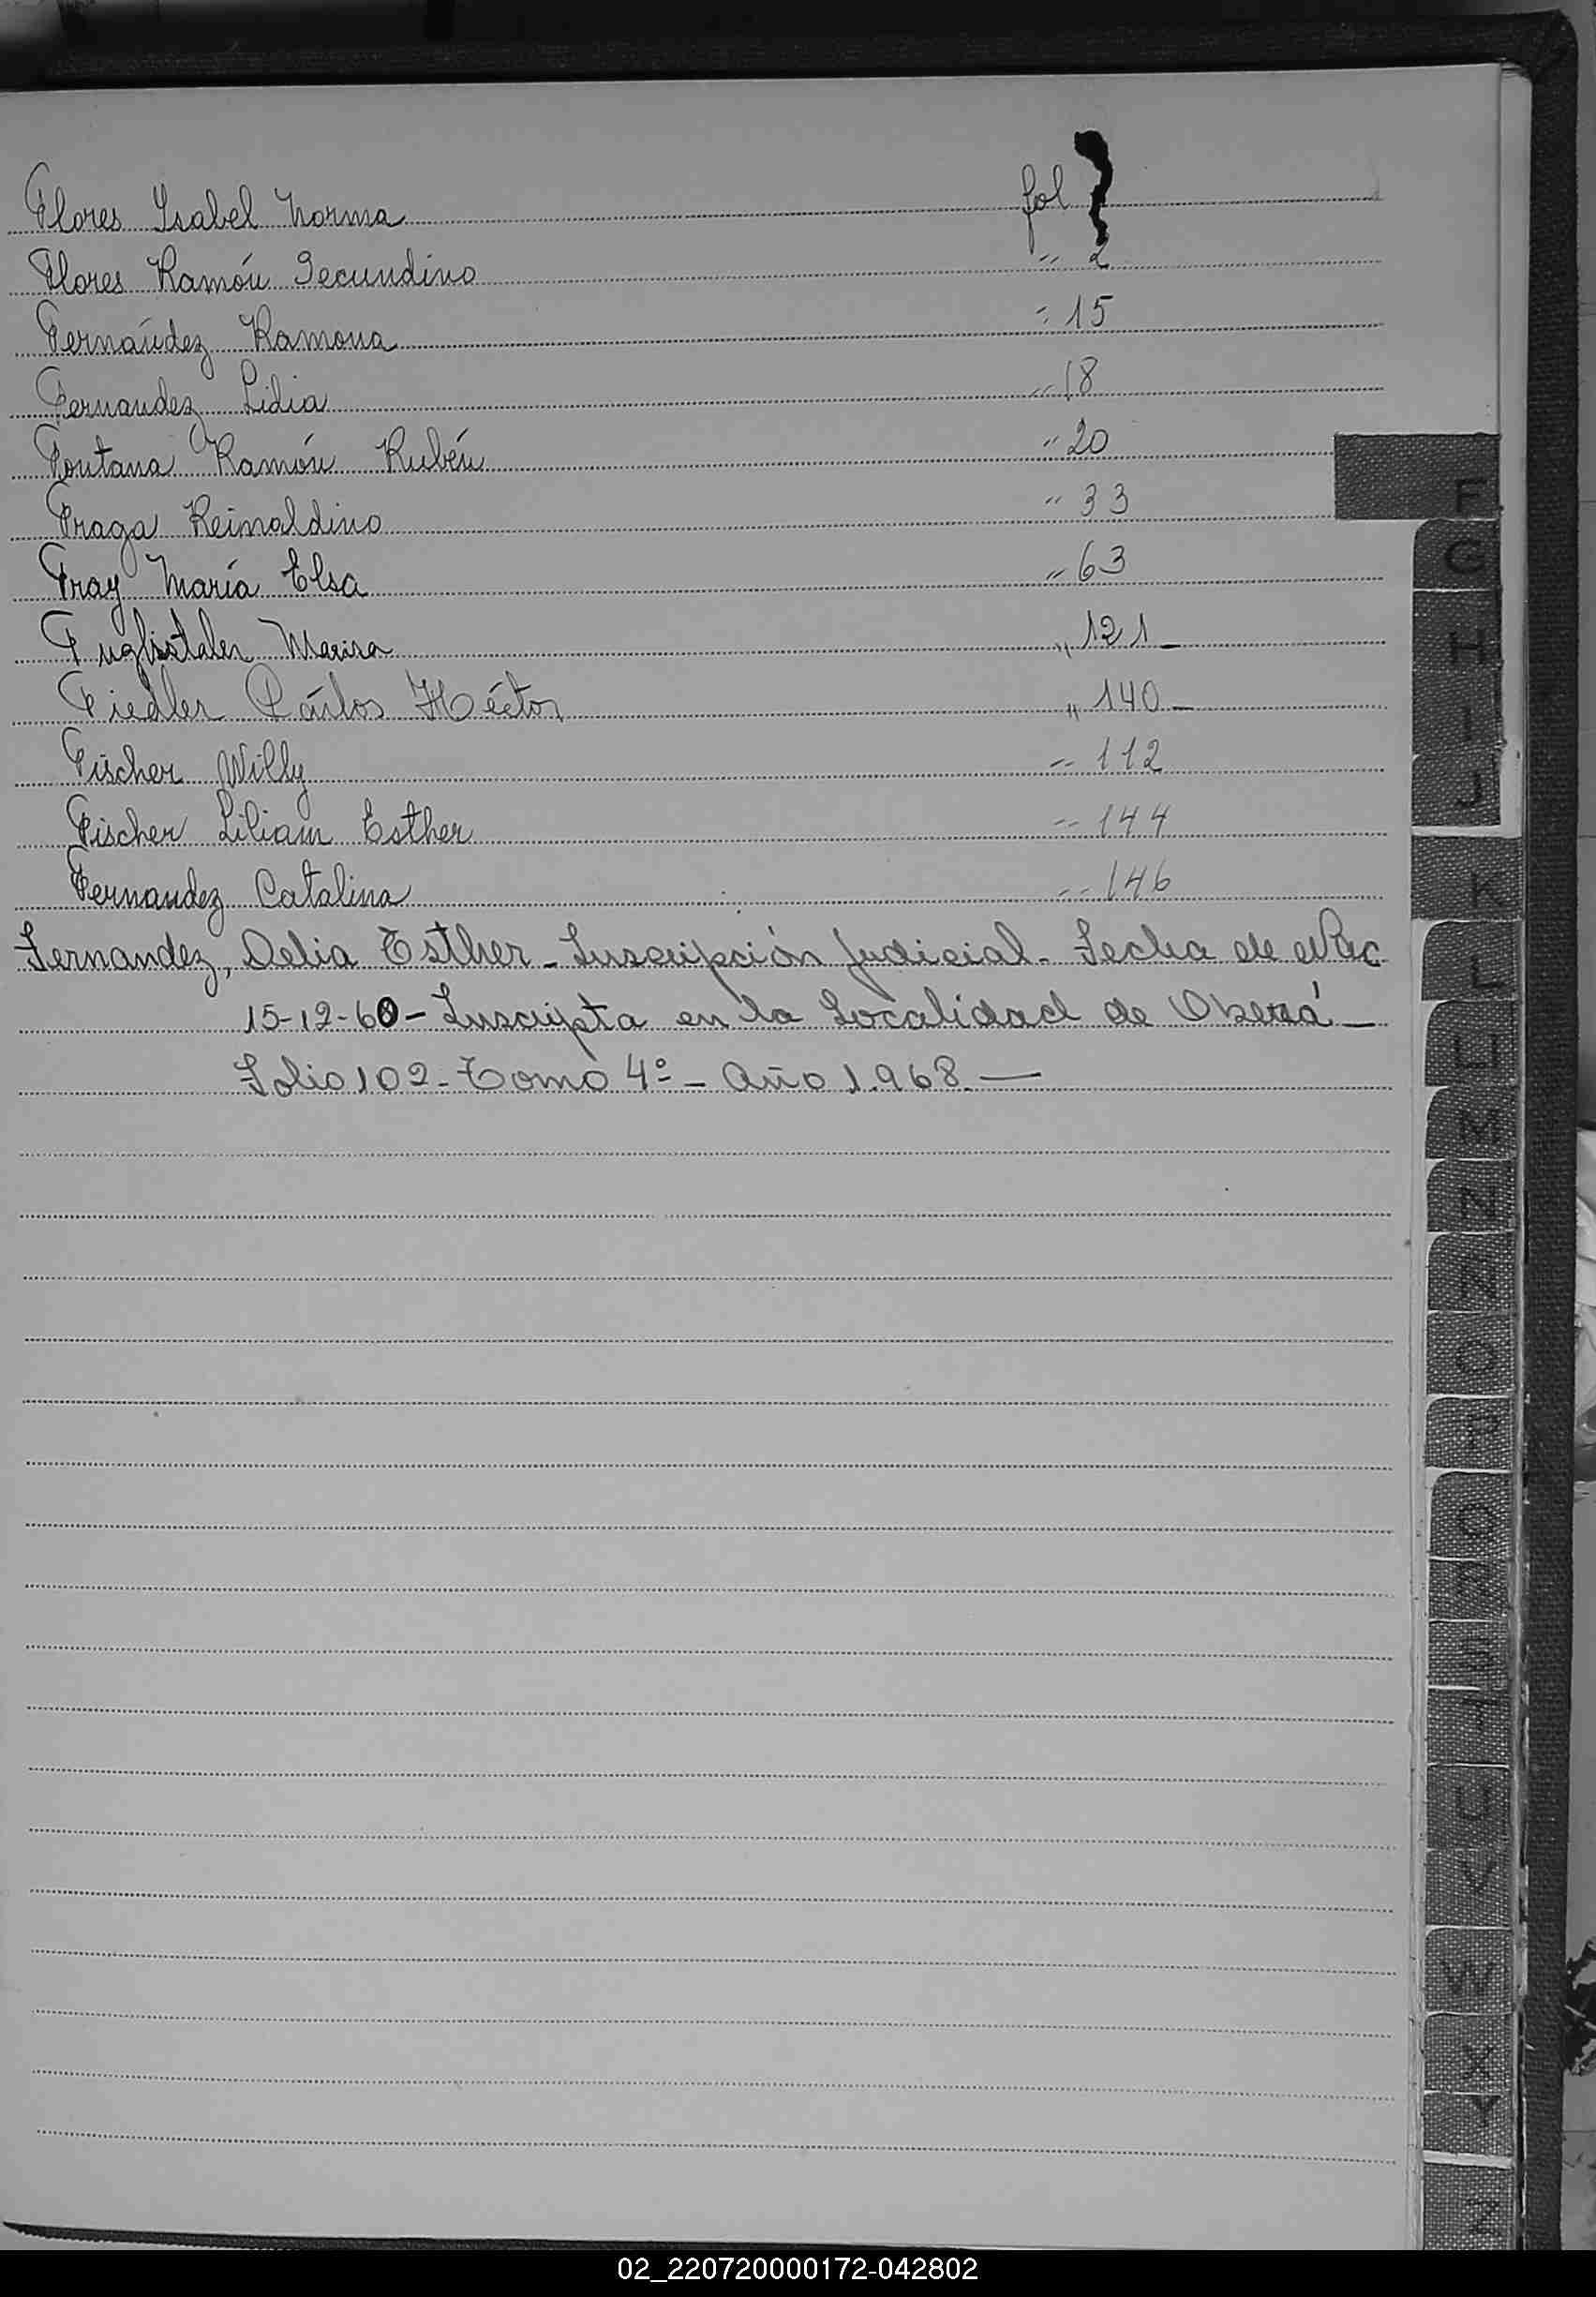 Flores Isabel Norma fol
Flores Ramón Secundino " 2
Fernández Ramona " 15
Fernandez Lidia " 18
Fontana Ramón Rubén " 20
Fraga Reinaldino " 33
Fray María Elsa " 63
Marisa " 121 -
Fiedler Cárlos Héctor " 140 -
Fischer Willy " 112
Fischer Liliam Esther " 144
Fernandez Catalina " 146
Fernandez, Delia Esther - Inscripción Judicial - Fecha de Nac
15-12-60 - Inscripta en la Localidad de Oberá -
Folio 102 - Tomo 4º - Año 1.968. —
F
G
H
I
J
K
L
LL
M
N
Ñ
O
P
Q
R
S
T
U
V
W
X
Y
Z
02_220720000172-042802